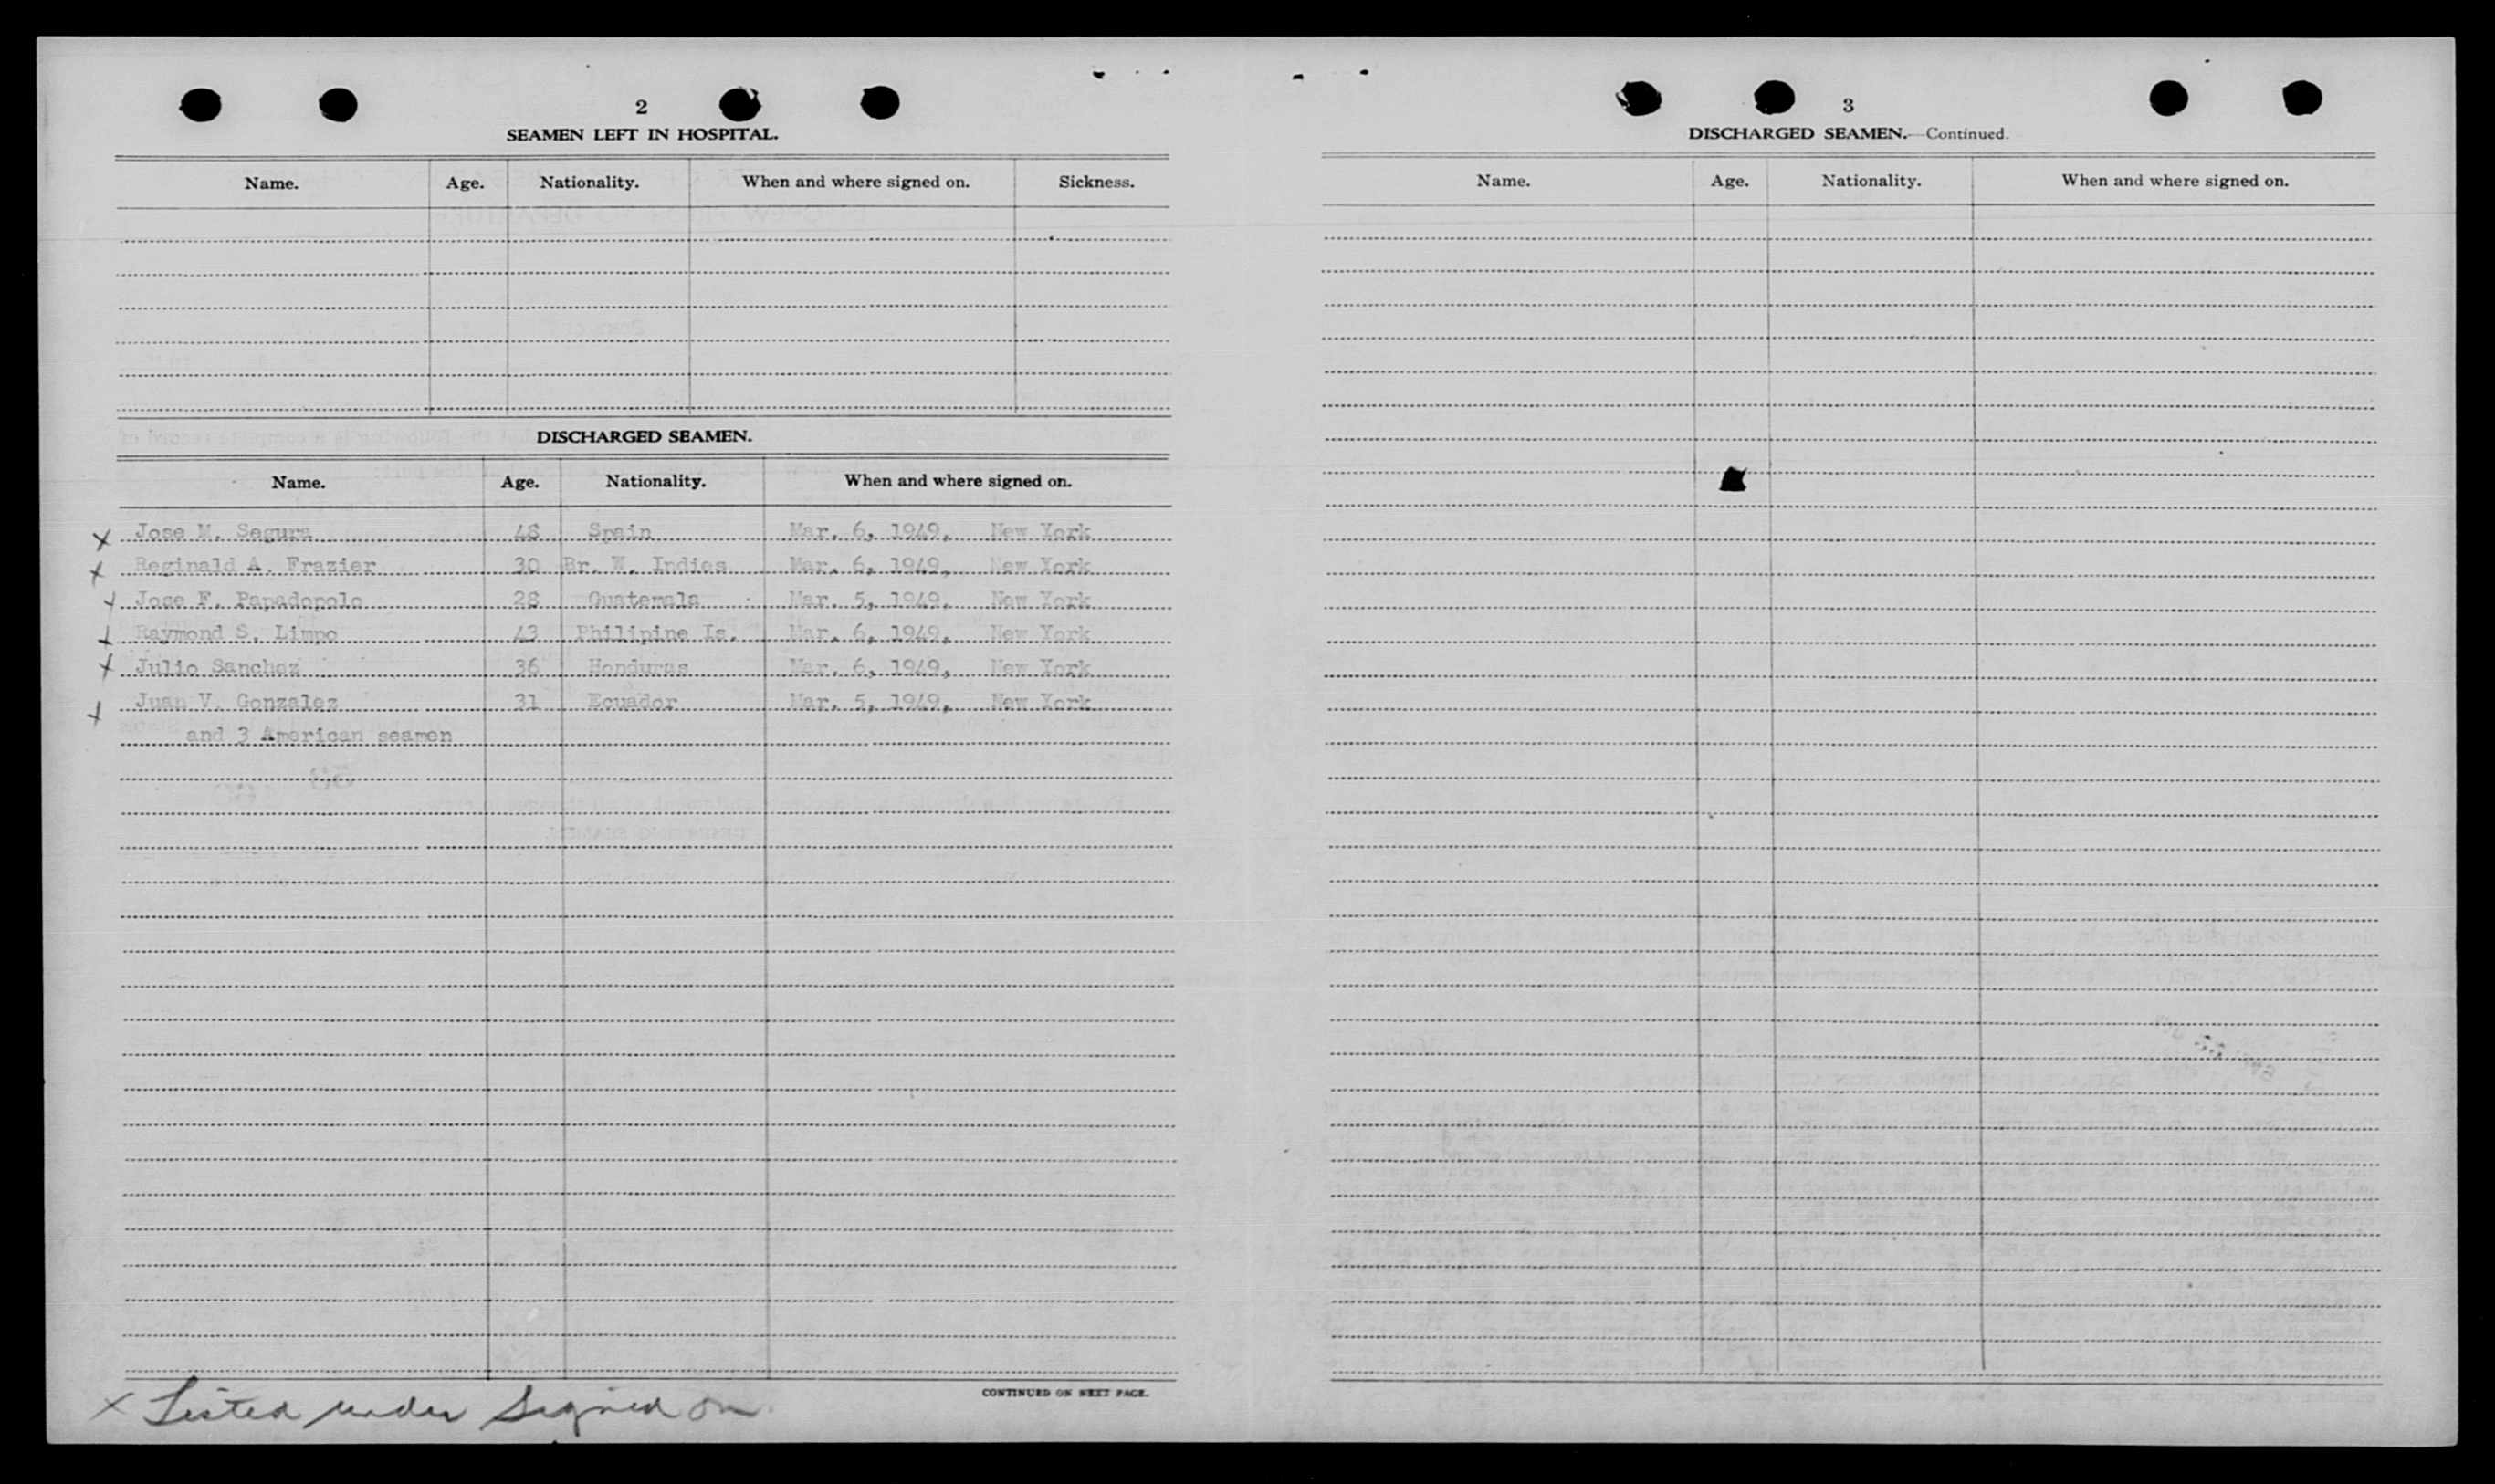 2
SEAMEN LEFT IN HOSPITAL.
Name. Age. Nationality. When and where signed on. Sickness.
DISCHARGED SEAMEN.
Name. Age. Nationality. When and where signed on.
x Jose M. Segura 48 Spain Mar. 6, 1949, New York
x Reginald A. Frazier 30 Br. W. Indies Mar. 6, 1949, New York
x Jose F. Papadopolo 28 Guatemala Mar. 5, 1949, New York
x Raymond S. Limpo 43 Philipine Is. Mar. 6, 1949, New York
x Julio Sanchez 36 Honduras Mar. 6, 1949, New York
x Juan V. Gonzalez 31 Ecuador Mar. 5, 1949, New York
and 3 American seamen
CONTINUED ON NEXT PAGE.
x Listed under Signed on.
3
DISCHARGED SEAMEN.—Continued.
Name. Age. Nationality. When and where signed on.